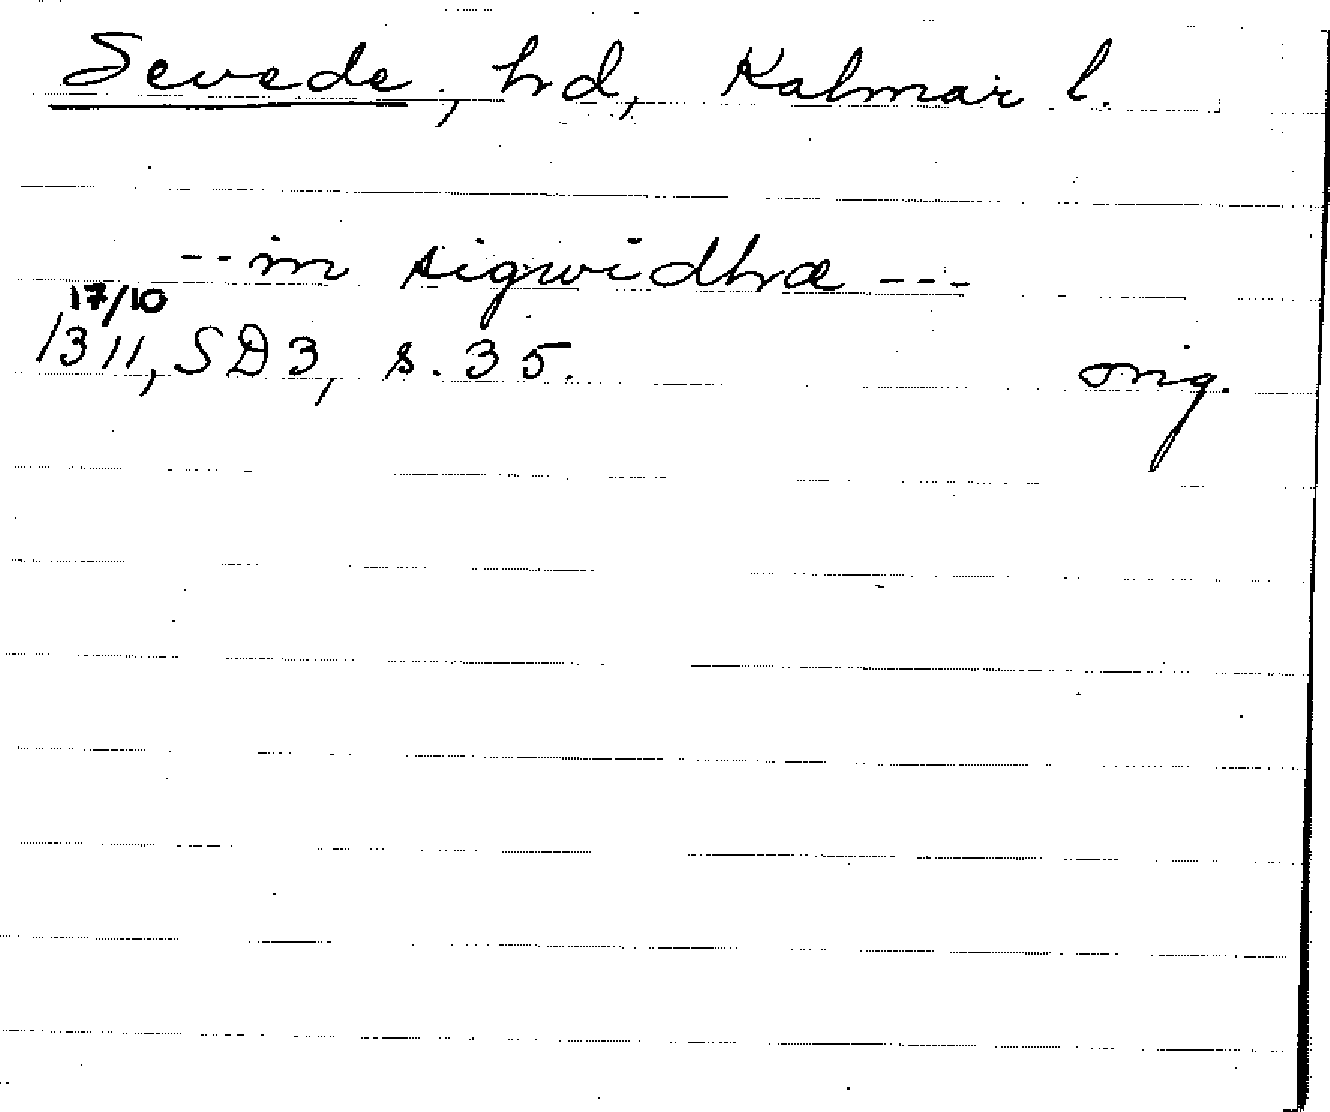 Sevede, hd, Kalmar l.
--in sigwidhræ---
17/10
1311, SD3, s. 35. orig.